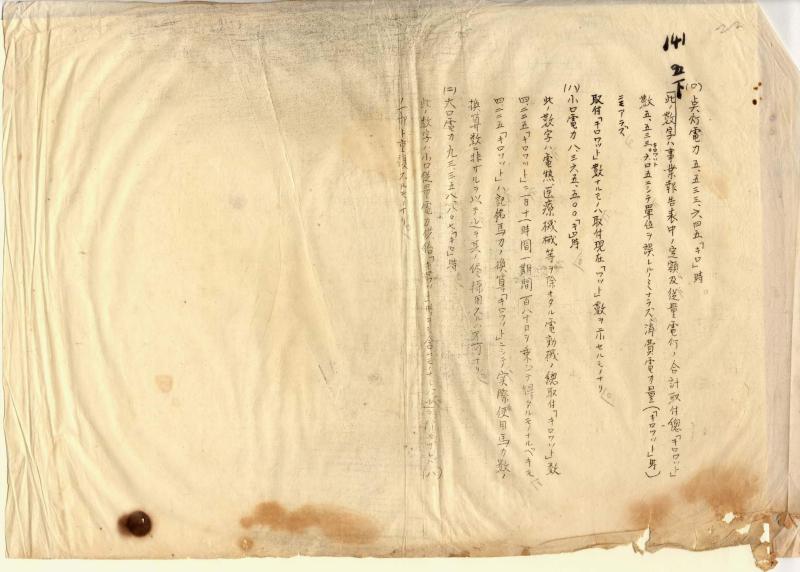 22
141
五下
(ロ)点灯電力五、五三三、六四五「キロ」時
此ノ数字ハ事業報告表中ノ定額及従量電灯ノ合計取付総「キロワット」
数五、五三三。六四五ニシテ單位ヲ誤レルノミナラズ、消費電力量(「キロワット」時)
キロワット
ニモアラズ
取付「キロワット」数ナルモノハ取付現在「ワット」数ヲ示セルモノナリ。
(ハ)小口電力八、三六五、五〇〇「キロ」時
此ノ数字ハ電熱医療機械等ヲ除キタル電動機ノ總取付「キロワット」数
四二二五「キロワット」ニ一日十一時間一期間一百八十日ヲ乗シテ得タルモノナルベキモ
四二二五「キロワット」ハ記銘馬力ノ換算「キロワット」ニシテ実際使用馬力数ノ
換算数ニ非サルヲ以テ之ヲ其ノ侭採用スルハ不可ナリ。
(ニ)大口電力九三三五八八〇七「キロ」時
此ノ数字ハ小口従量電力供給「キロワット」時ヲ
(ハ)
ノ一部ト重複スルモノナリ。